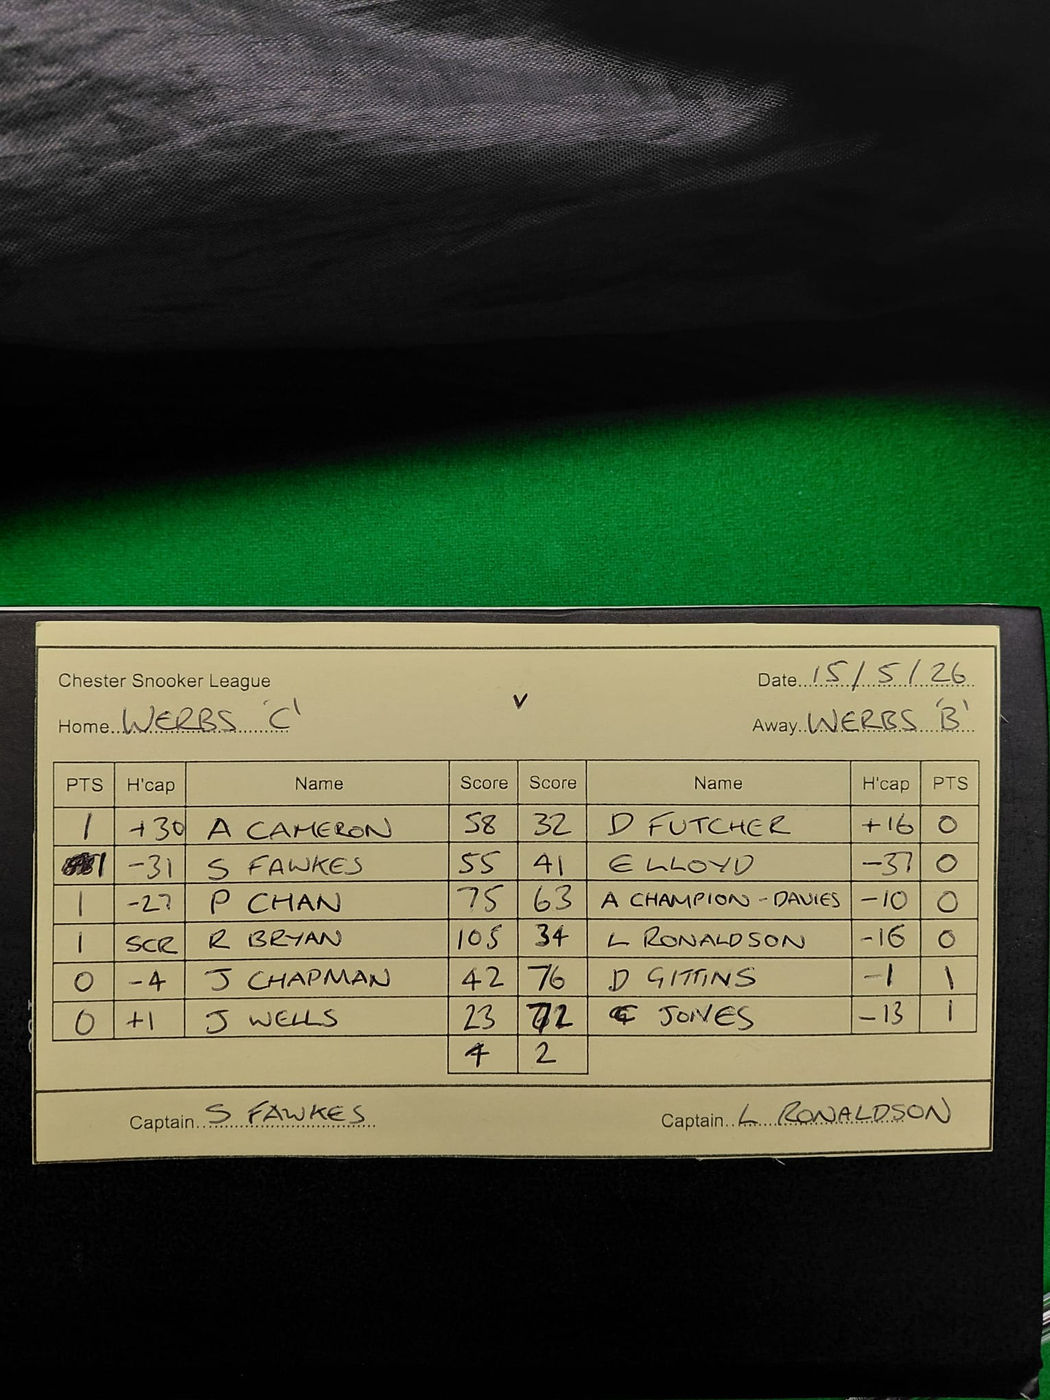 Chester Snooker League Date 15/5/26
v
Home WERBS 'C' Away WERBS 'B'
PTS H'cap Name Score Score Name H'cap PTS
1 +30 A CAMERON 58 32 D FUTCHER +16 0
1 -31 S FAWKES 55 41 E LLOYD -37 0
1 -27 P CHAN 75 63 A CHAMPION-DAVIES -10 0
1 SCR R BRYAN 105 34 L RONALDSON -16 0
0 -4 J CHAPMAN 42 76 D GITTINS -1 1
0 +1 J WELLS 23 72 JONES -13 1
4 2
Captain S FAWKES Captain L RONALDSON